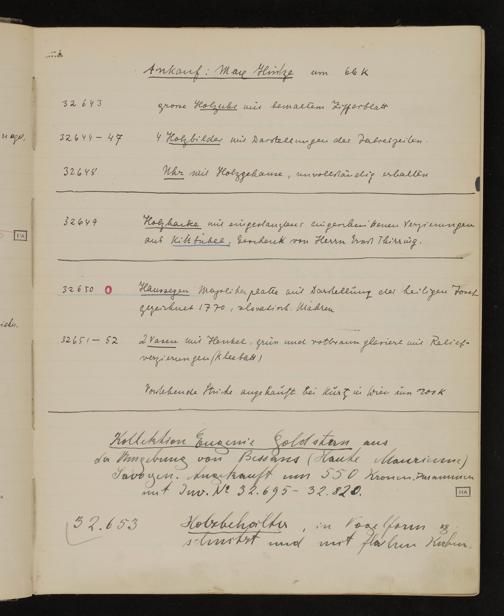 Ankauf: Max Hintze um 66 K
32643 grosse Holzuhr mit bemaltem Zifferblatt
32644-47 4 Holzbilder mit Darstellungen der Jahreszeiten.
32648 Uhr mit Holzgehäuse, unvollständig erhalten
32649 Holzhacke mit eingestanzten eingeschnittenen Verzierungen
aus Kitzbühel, Geschenk von Herrn
32650 Haussegen Majolikaplatte mit Darstellung des heiligen Josef
gezeichnet 1770, slovakisch. Mähren
32651-52 2 Vasen mit Henkel, grün und rotbraun glasiert mit Relief-
verzierungen (Kleeblatt)
Vorstehende Stücke angekauft bei Kurz in Wien um 200 K
Kollektion Eugenie Goldstern aus
der Umgebung von Bessans (Haute Maurienne)
Savoyen. Angekauft um 550 Kronen. Zusammen
mit Inv. № 32.695-32.820.
32.653 Holzbehälter, in Vogelform ge-
schnitzt und mit flachen